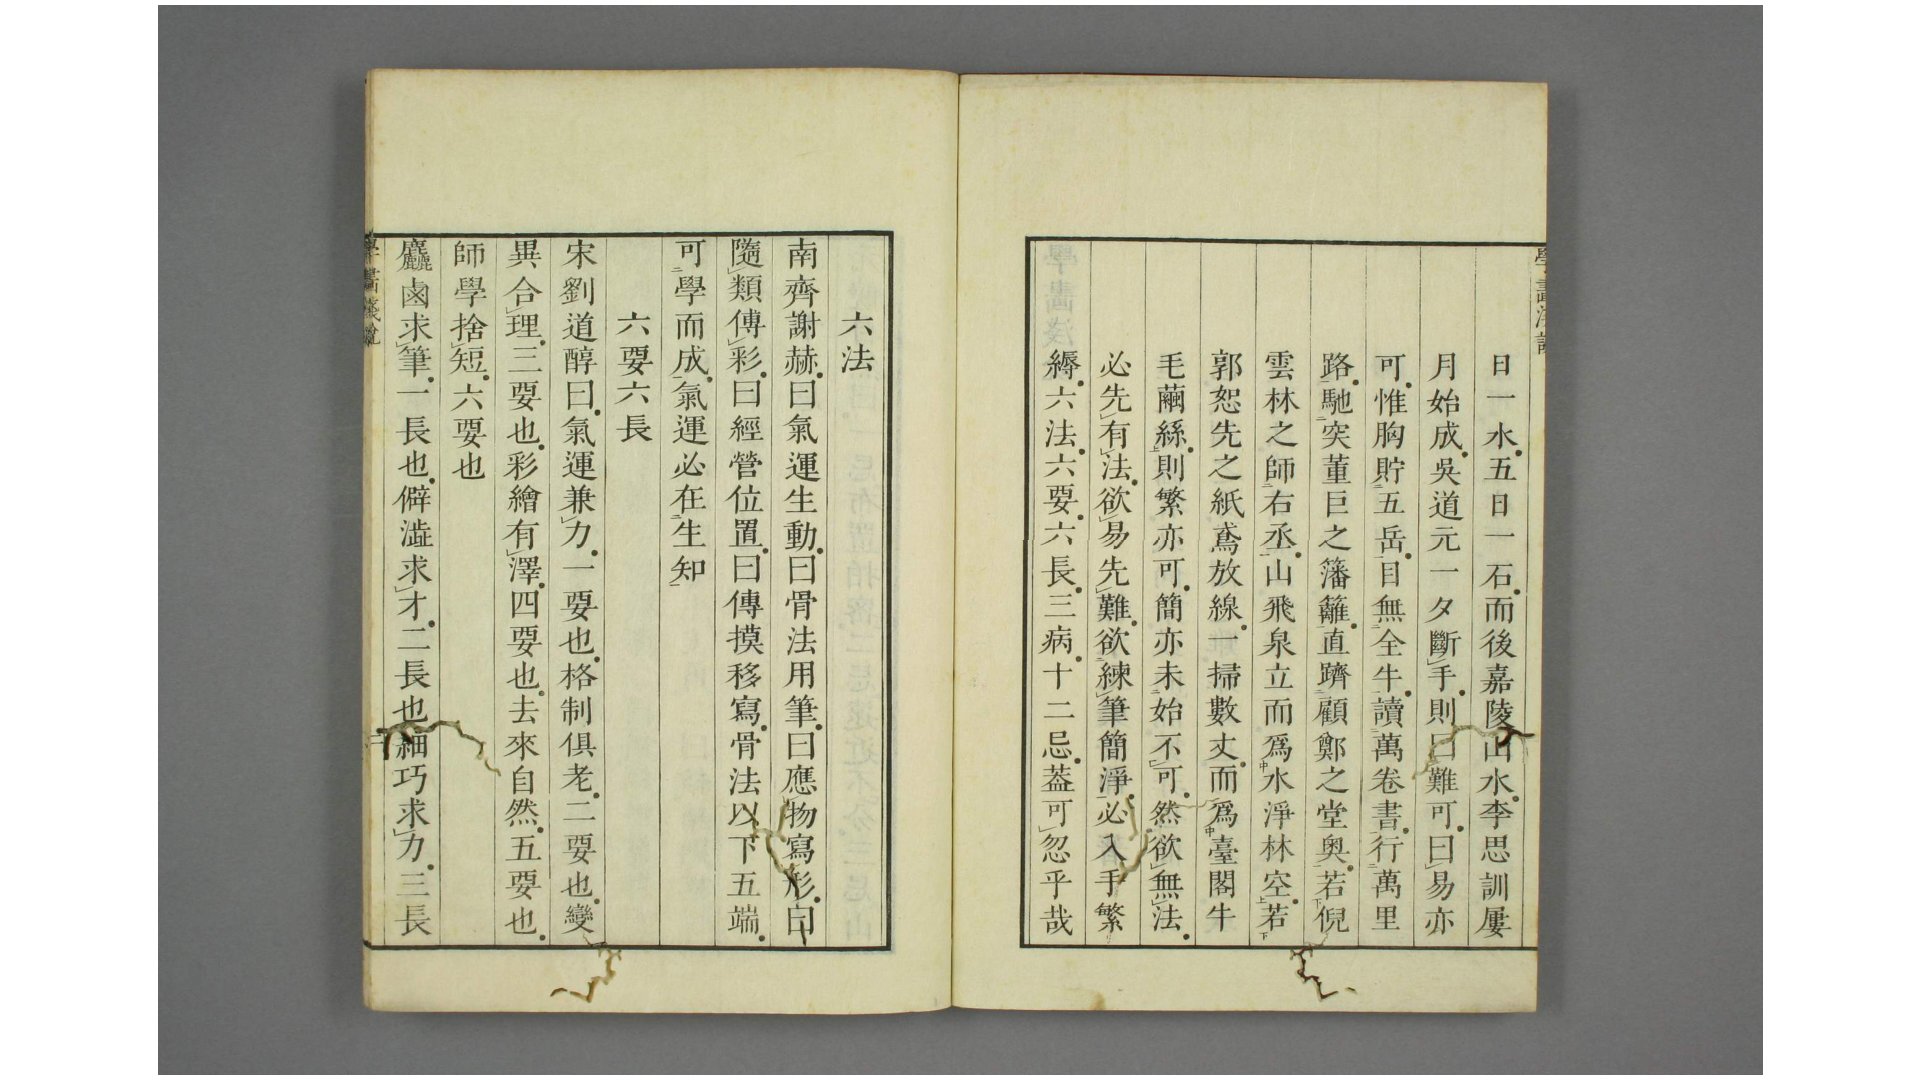 日一水五日一石而後嘉陵山水李思訓屢
月始成吳道元一夕斷手則曰難可曰易亦
可惟胸貯五岳目無全牛讀萬卷書行萬里
路馳突董巨之籓籬直躋顧鄭之堂奧若倪
雲林之師右丞山飛泉立而爲水淨林空若
郭恕先之紙鳶放線一掃數丈而爲臺閣牛
毛繭絲則繁亦可簡亦未始不可然欲無法
必先有法欲易先難欲練筆簡淨必入手繁
縟六法六要六長三病十二忌葢可忽乎哉
六法
南齊謝赫曰氣運生動曰骨法用筆曰應物寫形曰
隨類傅彩曰經營位置曰傳摸移寫骨法以下五端
可學而成氣運必在生知
六要六長
宋劉道醇曰氣運兼力一要也格制俱老二要也變
異合理三要也彩繪有澤四要也去來自然五要也
師學捨短六要也
麤鹵求筆一長也僻澁求才二長也細巧求力三長